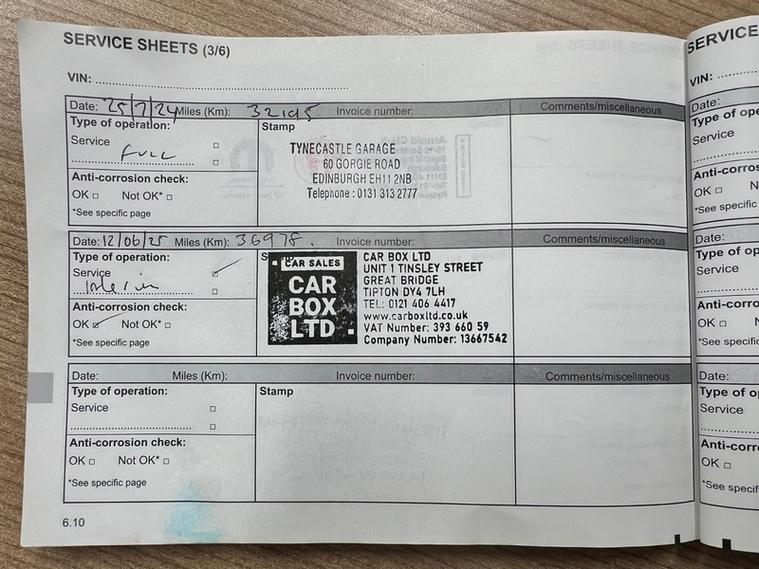 SERVICE SHEETS (3/6)
VIN:
Date: 25/7/24 Miles (Km): 32195 Invoice number: Comments/miscellaneous
Type of operation: Stamp
Service
FULL
TYNECASTLE GARAGE
60 GORGIE ROAD
EDINBURGH EH11 2NB
Telephone: 0131 313 2777
Anti-corrosion check:
OK Not OK*
*See specific page
Date: 12/06/25 Miles (Km): 36978. Invoice number: Comments/miscellaneous
Type of operation:
Service
Interim
CAR SALES
CAR
BOX
LTD
CAR BOX LTD
UNIT 1 TINSLEY STREET
GREAT BRIDGE
TIPTON DY4 7LH
TEL: 0121 406 4417
www.carboxltd.co.uk
VAT Number: 393 660 59
Company Number: 13667542
Anti-corrosion check:
OK Not OK*
*See specific page
Date: Miles (Km): Invoice number: Comments/miscellaneous
Type of operation: Stamp
Service
Anti-corrosion check:
OK Not OK*
*See specific page
6.10
SERVICE
VIN:
Date:
Type of op
Service
Anti-corros
OK N
*See specif
Date:
Type of op
Service
Anti-corro
OK
*See specif
Date:
Type of op
Service
Anti-corr
OK
*See specif